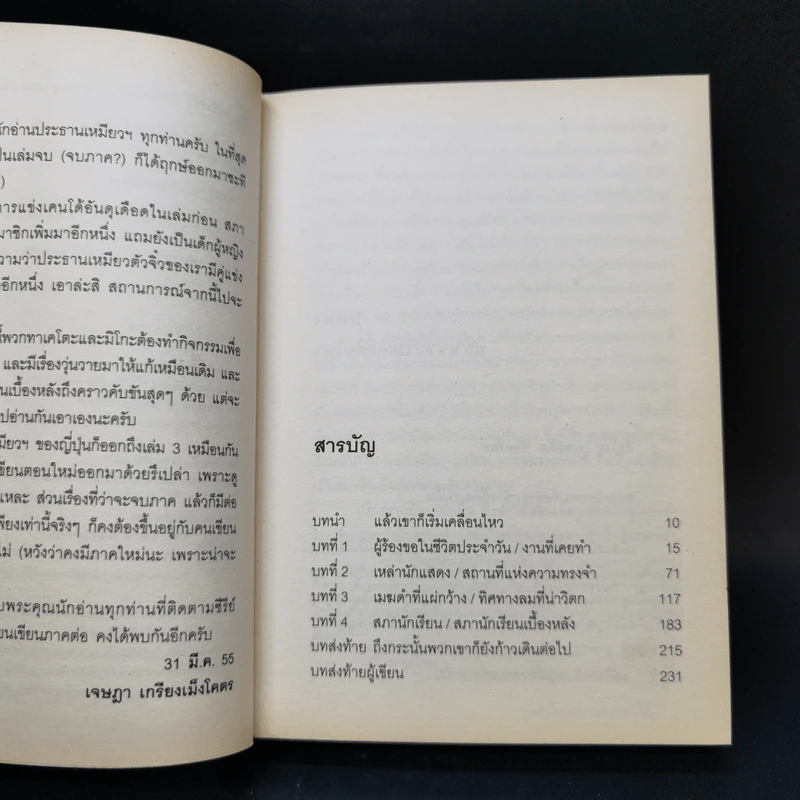 นักอ่านประธานเหมียวฯ ทุกท่านครับ ในที่สุด
เป็นเล่มจบ (จบภาค?) ก็ได้ฤกษ์ออกมาซะที
)
การแข่งเคนโด้อันดุเดือดในเล่มก่อน สภา
มาชิกเพิ่มมาอีกหนึ่ง แถมยังเป็นเด็กผู้หญิง
ความว่าประธานเหมียวตัวจิ๋วของเรามีคู่แข่ง
อีกหนึ่ง เอาล่ะสิ สถานการณ์จากนี้ไปจะ
นี้พวกทาเคโตะและมิโกะต้องทำกิจกรรมเพื่อ
และมีเรื่องวุ่นวายมาให้แก้เหมือนเดิม และ
นเบื้องหลังถึงคราวคับขันสุดๆ ด้วย แต่จะ
ปอ่านกันเอาเองนะครับ
มียวฯ ของญี่ปุ่นก็ออกถึงเล่ม 3 เหมือนกัน
เขียนตอนใหม่ออกมาด้วยรึเปล่า เพราะดู
แหละ ส่วนเรื่องที่ว่าจะจบภาค แล้วก็มีต่อ
พียงเท่านี้จริงๆ ก็คงต้องขึ้นอยู่กับคนเขียน
ไม่ (หวังว่าคงมีภาคใหม่นะ เพราะน่าจะ
บพระคุณนักอ่านทุกท่านที่ติดตามซีรีย์
ยนเขียนภาคต่อ คงได้พบกันอีกครับ
31 มี.ค. 55
เจษฎา เกรียงเม็งโคตร
สารบัญ
บทนำ แล้วเขาก็เริ่มเคลื่อนไหว 10
บทที่ 1 ผู้ร้องขอในชีวิตประจำวัน / งานที่เคยทำ 15
บทที่ 2 เหล่านักแสดง / สถานที่แห่งความทรงจำ 71
บทที่ 3 เมฆดำที่แผ่กว้าง / ทิศทางลมที่น่าวิตก 117
บทที่ 4 สภานักเรียน / สภานักเรียนเบื้องหลัง 183
บทส่งท้าย ถึงกระนั้นพวกเขาก็ยังก้าวเดินต่อไป 215
บทส่งท้ายผู้เขียน 231